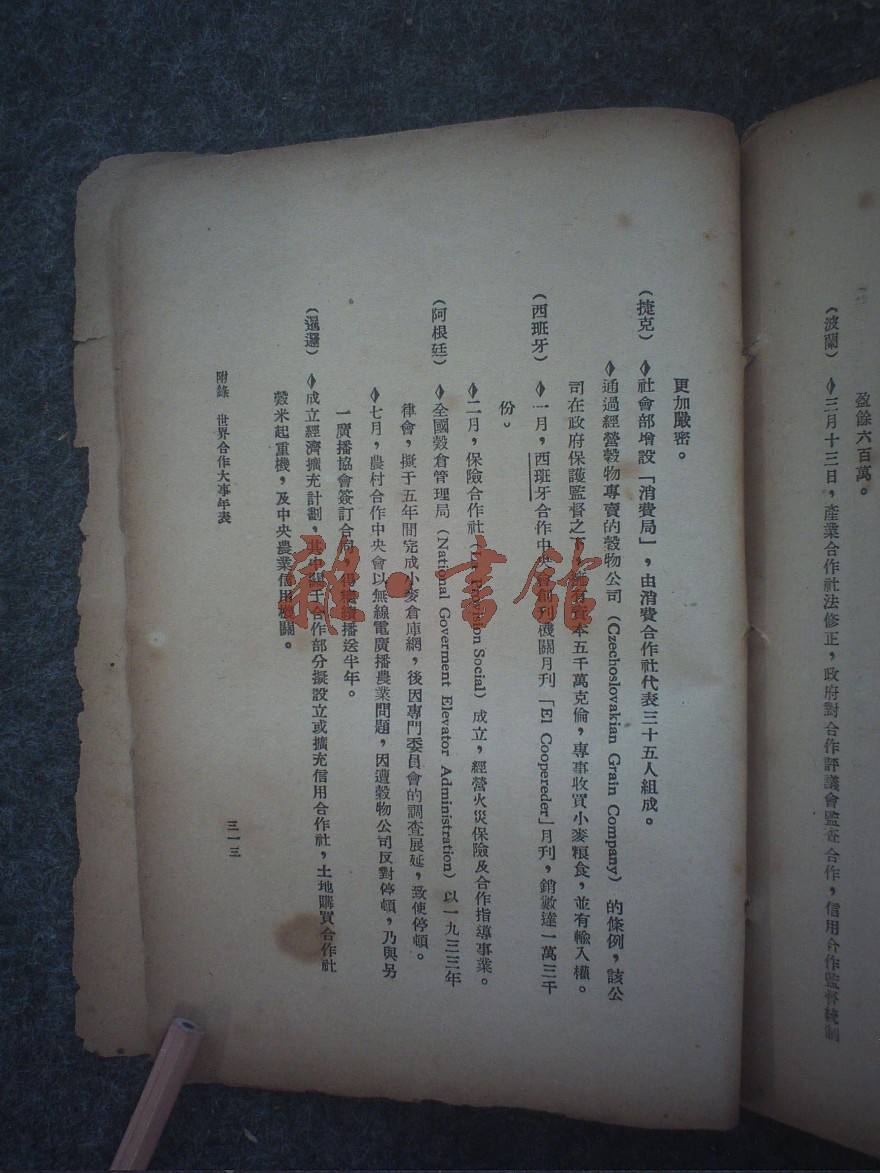 盈餘六百萬。
(波蘭) ◆三月十三日，產業合作社法修正，政府對合作評議會監查合作，信用合作監督統制
更加嚴密。
(捷克) ◆社會部增設「消費局」，由消費合作社代表三十五人組成。
◆通過經營穀物專賣的穀物公司 (Czechoslovakian Grain Company) 的條例，該公
司在政府保護監督之下，擁有資本五千萬克倫，專事收買小麥糧食，並有輸入權。
(西班牙) ◆一月，西班牙合作中央會創刊機關月刊「El Coopereder」月刊，銷數達一萬三千
份。
◆二月，保險合作社 (La Provision Social) 成立，經營火災保險及合作指導事業。
(阿根廷) ◆全國穀倉管理局 (National Goverment Elevator Administration) 以一九三三年
律會，擬于五年間完成小麥倉庫網，後因專門委員會的調查展延，致使停頓。
◆七月，農村合作中央會以無線電廣播農業問題，因遭穀物公司反對停頓，乃與另
一廣播協會簽訂合同，得繼續播送半年。
(暹邏) ◆成立經濟擴充計劃，其中關于合作部分擬設立或擴充信用合作社，土地購買合作社
穀米起重機，及中央農業信用機關。
附錄 世界合作大事年表
三一三
雜·書館